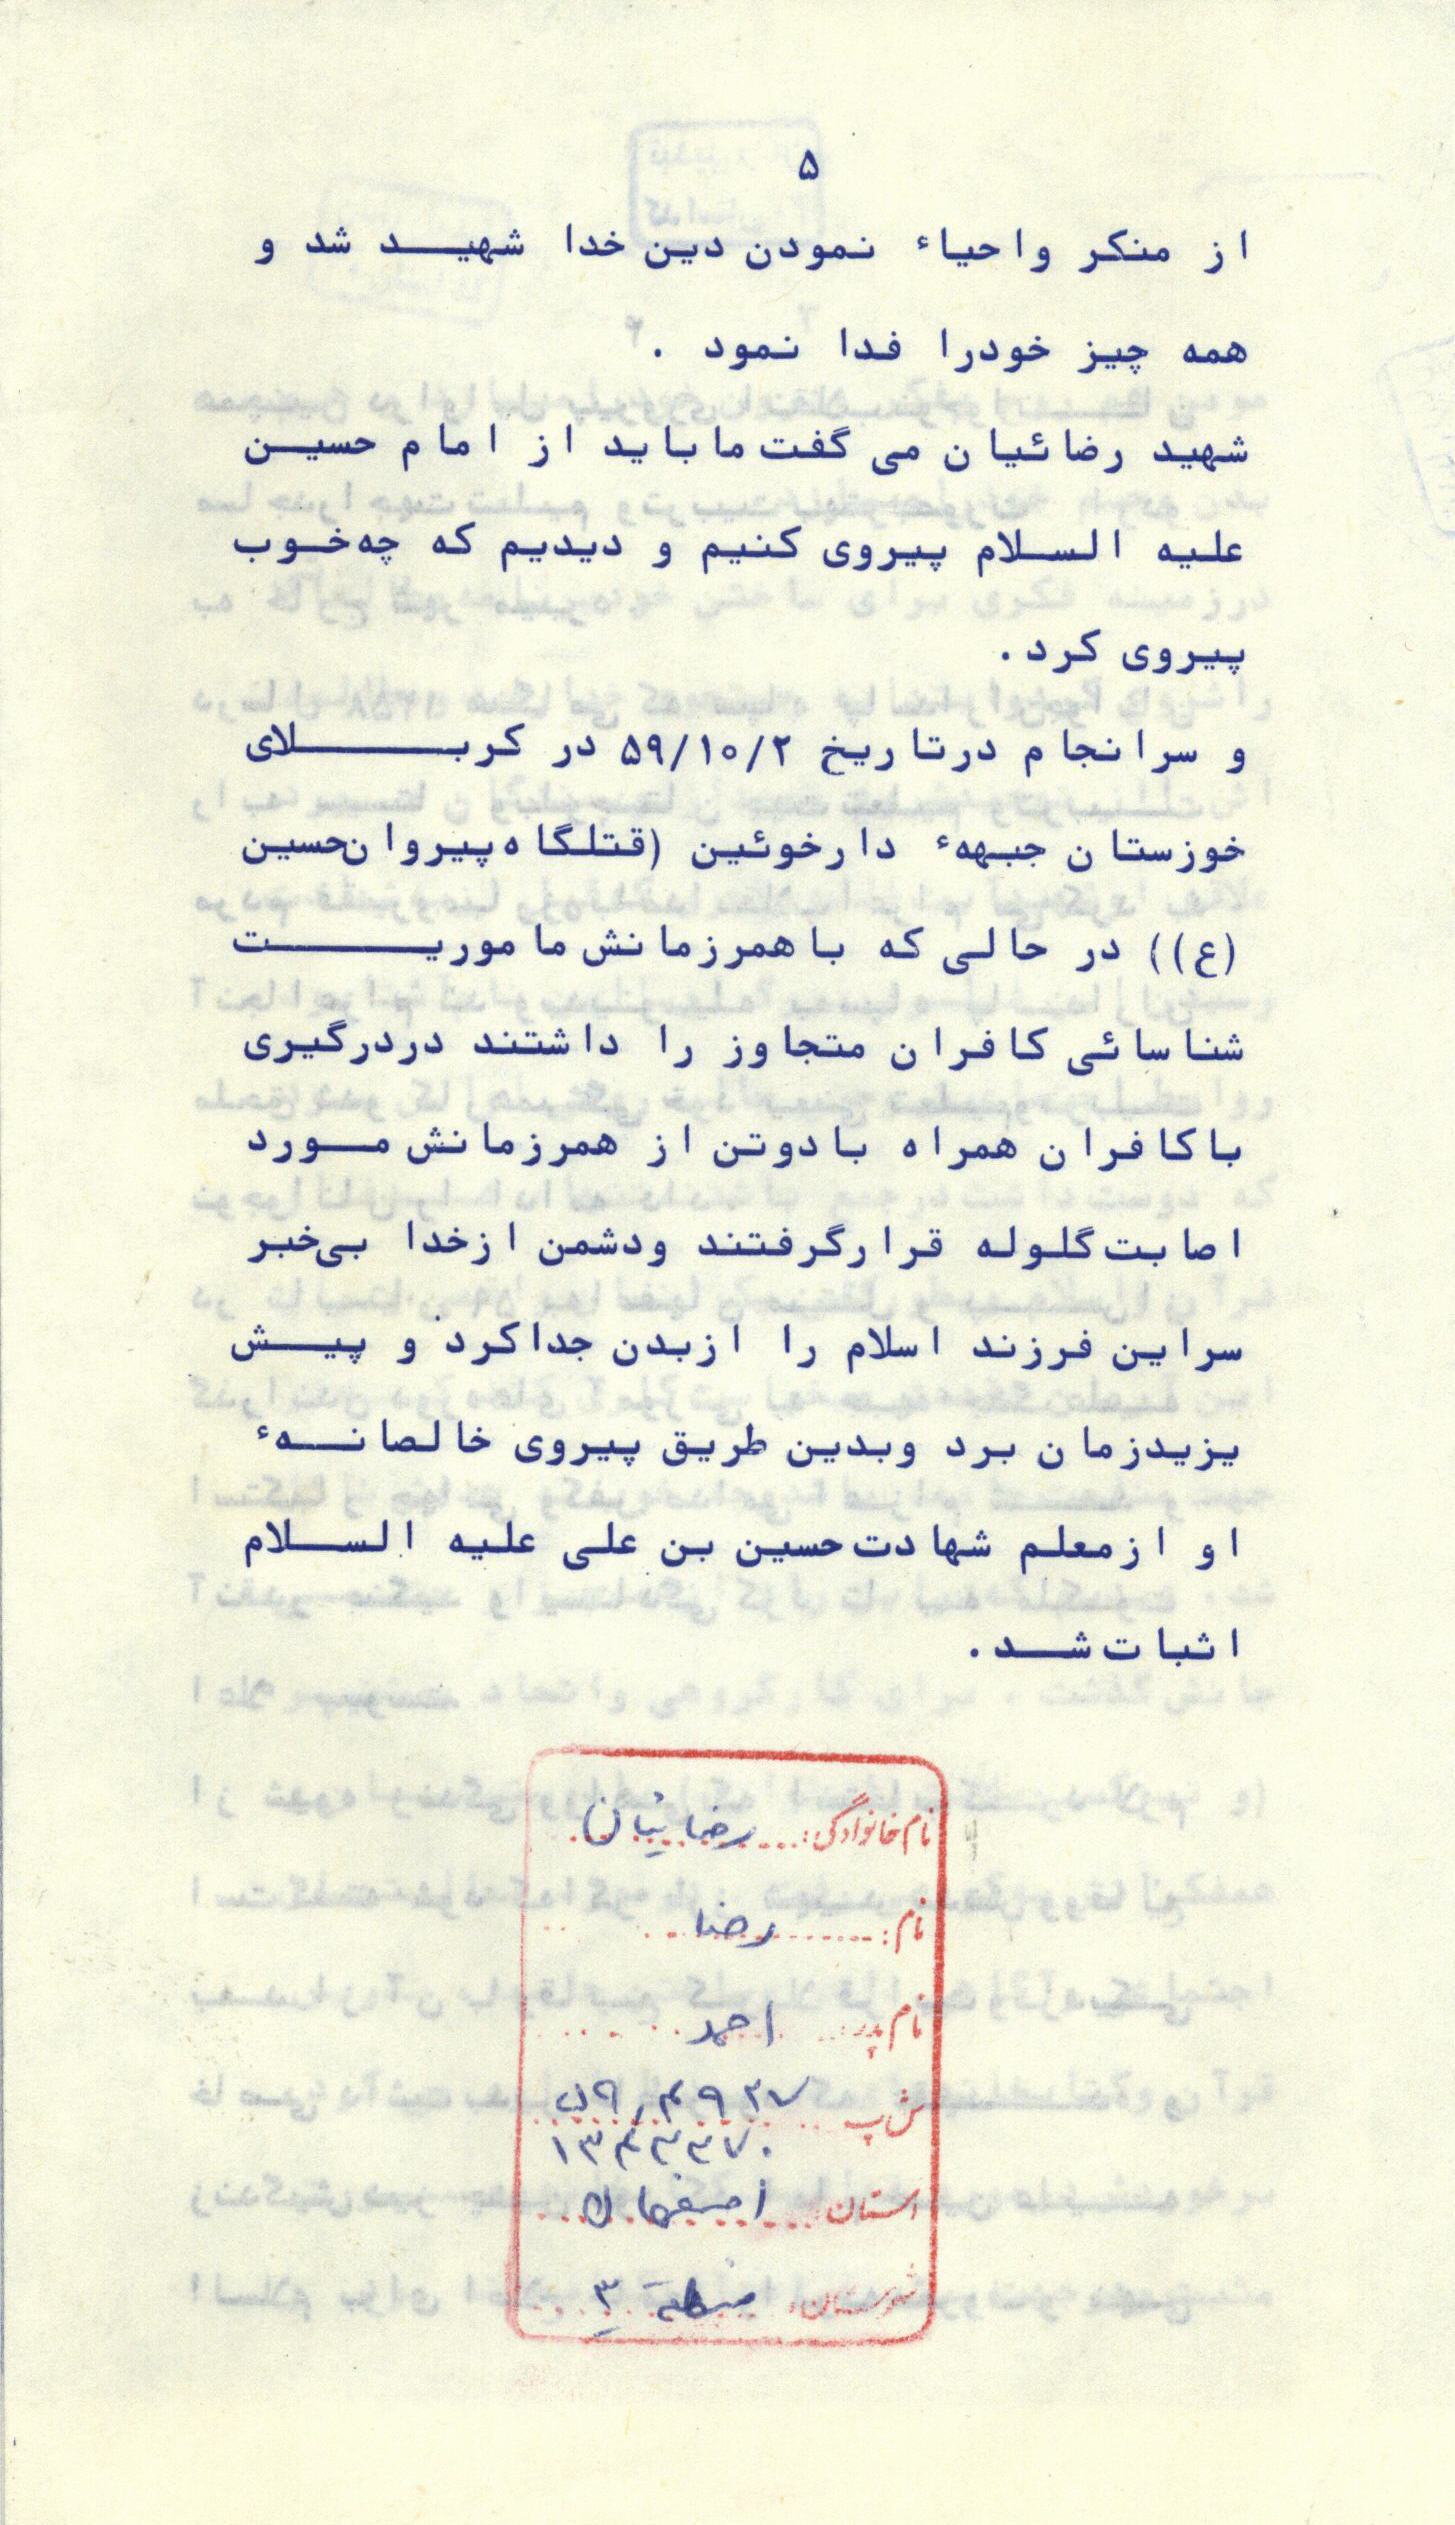 ۵
از منکر واحیاء نمودن دین خدا شهید شد و
همه چیز خودرا فدا نمود .
شهید رضائیان می گفت ماباید از امام حسین
علیه السلام پیروی کنیم و دیدیم که چه‌خوب
پیروی کرد.
و سرانجام درتاریخ ۵۹/۱۰/۲ در کربلای
خوزستان جبههٔ دارخوئین (قتلگاه‌پیروان‌حسین
(ع)) در حالی که باهمرزمانش ماموریت
شناسائی کافران متجاوز را داشتند دردرگیری
باکافران همراه بادوتن از همرزمانش مورد
اصابت‌گلوله قرارگرفتند ودشمن ازخدا بی‌خبر
سراین فرزند اسلام را ازبدن جداکرد و پیش
یزیدزمان برد وبدین طریق پیروی خالصانهٔ
او ازمعلم شهادت‌حسین بن علی علیه السلام
اثبات‌شد.
نام خانوادگی: رضائیان
نام: رضا
نام پدر: احمد
ش پ
۱۳۴۲۲۷۰
استان: اصفهان
شهرستان: منطقه ۳